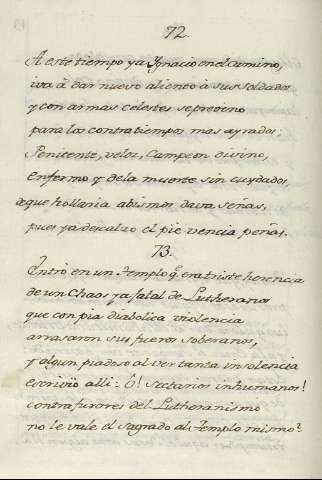 72.
A este tiempo ya Ignacio en el camino,
iva â dar nuevo aliento â sus soldados
y con armas celestes se previno
para los contratiempos mas ayrados:
Penitente, veloz, Campeon divino,
enfermo y dela muerte sin cuydados,
de que hollaria abismos dava señas,
pues ya descalzo el pie vencia peñas.
73.
Entrò en un templo q̃ era triste herencia
de un Chaos, ya fatal de Lutheranos
que con pia diabolica violencia
arrasaron sus fueros soberanos,
y algun piadoso al ver tanta insolencia
escriviò alli: O! Sectarios inhumanos!
contra furores del Lutheranismo
no le vale el sagrado al templo mismo?